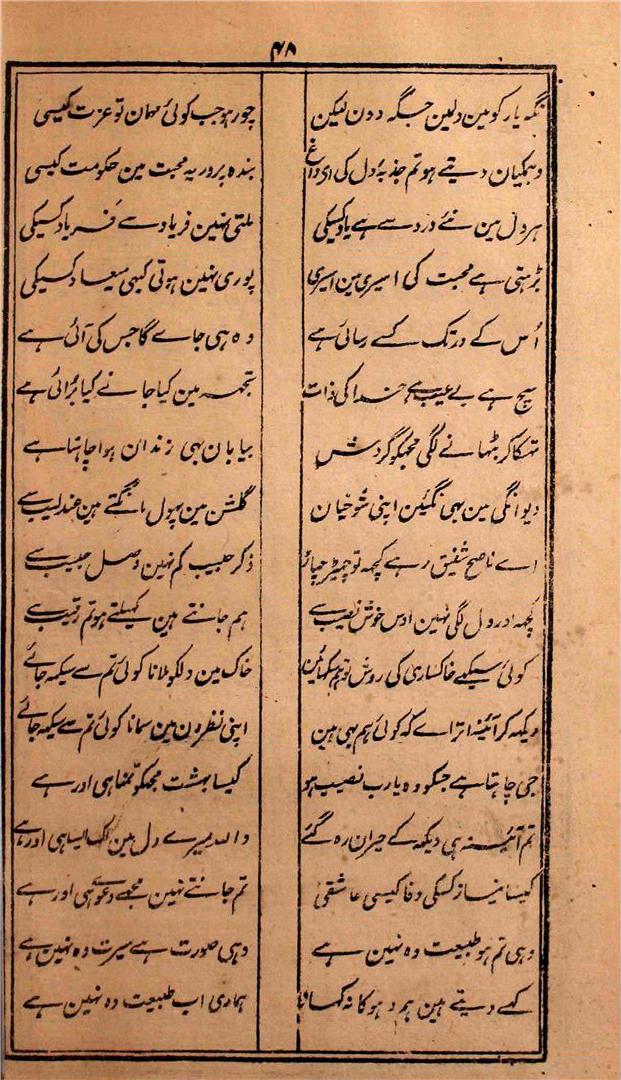 ۴۸
نگہ یار کو مین دلمین جگہ دون لیکن
چور ہو جب کوئی مہمان تو عزت کیسی
دہمکیان دیتے ہو تم جذبۂ دل کی ای داغ
بندہ پرور یہ محبت مین حکومت کیسی
ہر دل مین نئے درد سے ہے یاد کسیکی
ملتی نہین فریاد سے فریاد کسیکی
بڑہتی ہے محبت کی اسیری مین اسیری
پوری نہین ہوتی کبہی میعاد کسیکی
اُس کے در تک کسے رسائی ہے
وہ ہی جاے گا جس کی آئی ہے
سچ ہے بے عیب ہے خدا کی ذات
تجہہ مین کیا جانے کیا برائی ہے
تہکا کر بٹہانے لگی مجہکو گردش
بیابان بہی زندان ہوا چاہتا ہے
دیوانگی مین بہی نگئین اپنی شوخیان
گلشن مین پہول مانگتے ہین عندلیب سے
اے ناصح شفیق رہے کچہہ تو چہیڑ چہاڑ
ذکر حبیب کم نہین وصل حبیب سے
کچہہ اور دل لگی نہین اوس خوش نصیب سے
ہم جانتے ہین کہیلتے ہو تم رقیب سے
کوئی سیکہے خاکساری کی روش تو ہم سکہائین
خاک مین دلکو ملانا کوئی تم سے سیکہہ جائے
دیکہہ کر آئینہ اتراے کہ کوئی ہم بہی ہین
اپنی نظرون مین سمانا کوئی تم سے سیکہہ جائے
جی چاہتا ہے جسکو وہ یارب نصیب ہو
کیسا بہشت مجہکو تمنا ہی اور ہے
تم آئینہ ہی دیکہہ کے حیران رہ گئے
واللہ میرے دل مین ایسا ہی اور ہے
کیسا نیاز کسکی وفا کیسی عاشقی
تم جانتے نہین مجہے دعویٰ ہی اور ہے
وہی تم ہو طبیعت وہ نہین ہے
وہی صورت ہے سیرت وہ نہین ہے
کہے دیتے ہین ہم دہوکا نہ کہانا
ہماری اب طبیعت وہ نہین ہے